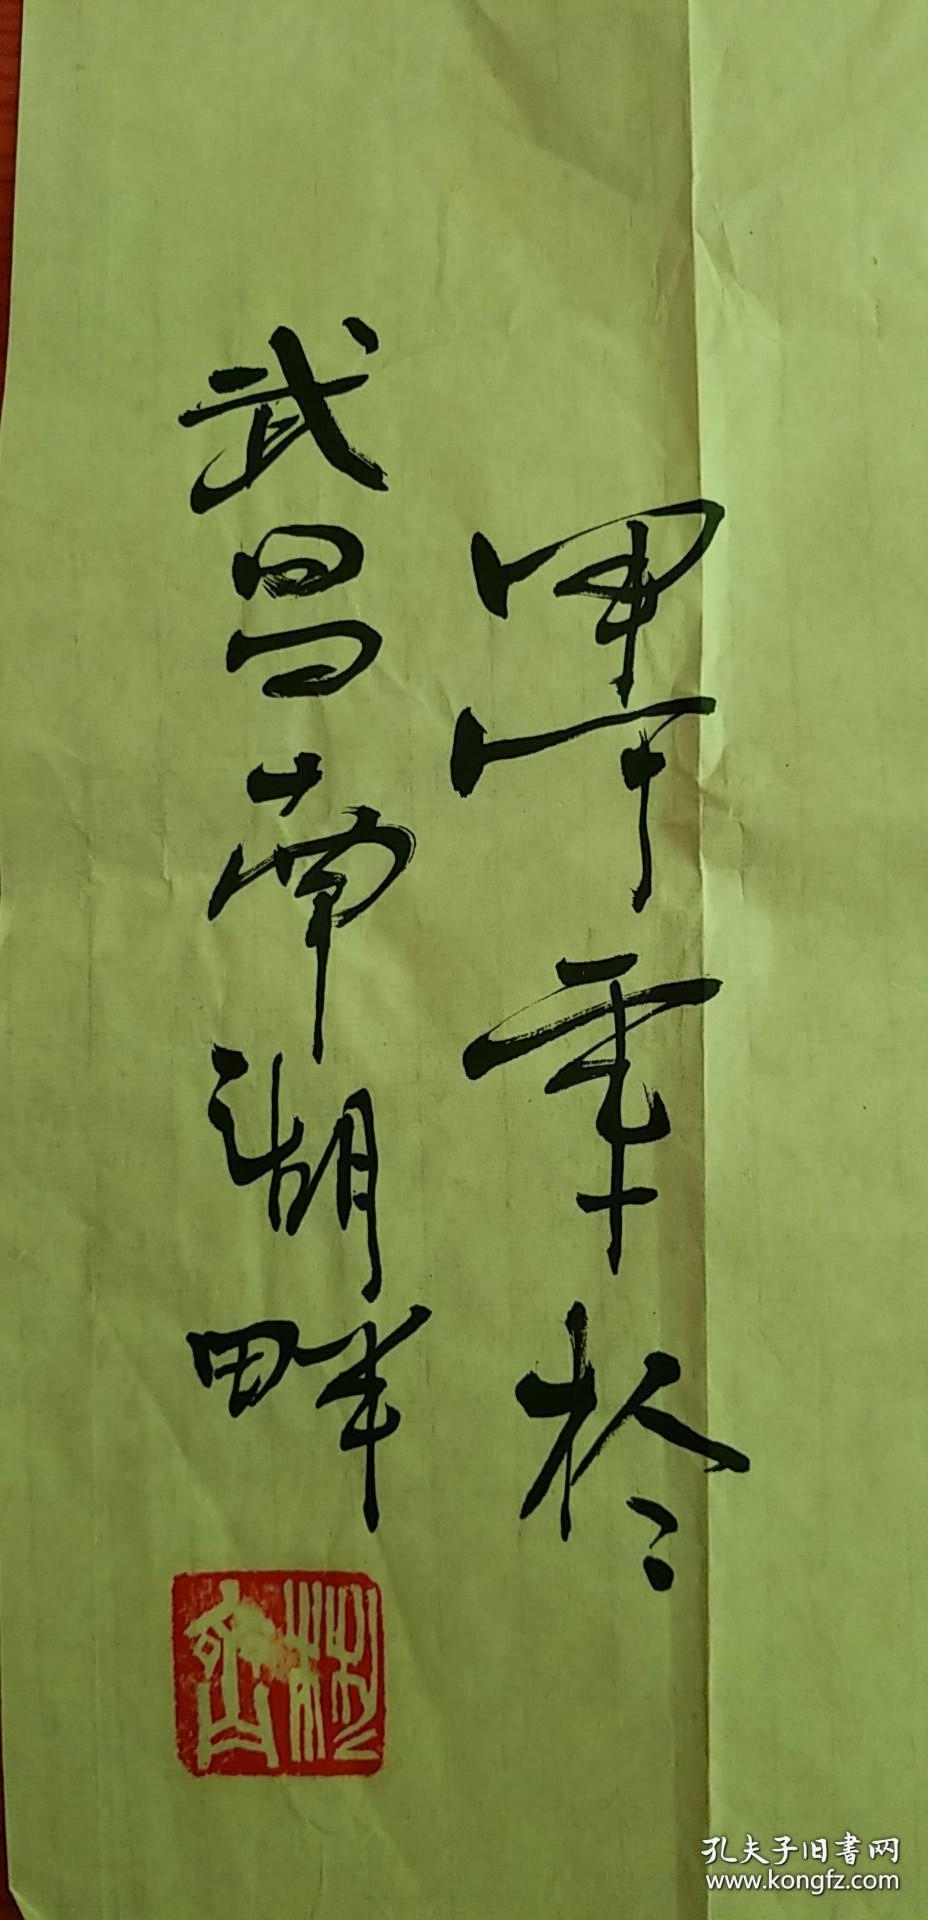 甲午年於
武昌南湖畔
孔夫子旧書网
www.kongfz.com